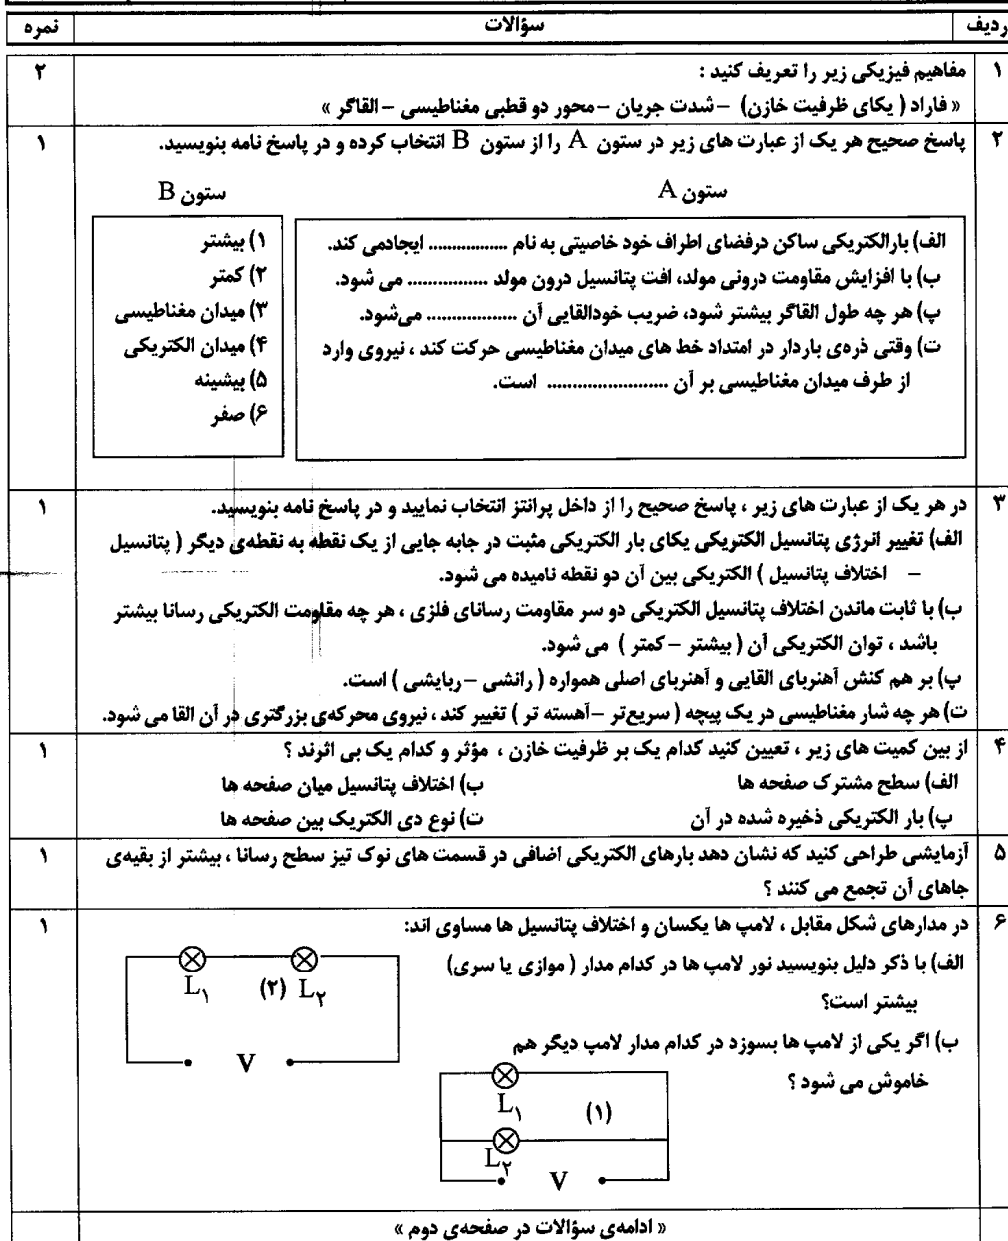 ردیف	سؤالات	نمره
۱	مفاهیم فیزیکی زیر را تعریف کنید :	۲
« فاراد ( یکای ظرفیت خازن) – شدت جریان – محور دو قطبی مغناطیسی – القاگر »
۲	پاسخ صحیح هر یک از عبارت های زیر در ستون A را از ستون B انتخاب کرده و در پاسخ نامه بنویسید.	۱
ستون A	ستون B
الف) بارالکتریکی ساکن درفضای اطراف خود خاصیتی به نام ................. ایجادمی کند.
ب) با افزایش مقاومت درونی مولد، افت پتانسیل درون مولد ................. می شود.
پ) هر چه طول القاگر بیشتر شود، ضریب خودالقایی آن ................... می‌شود.
ت) وقتی ذره‌ی باردار در امتداد خط های میدان مغناطیسی حرکت کند ، نیروی وارد
از طرف میدان مغناطیسی بر آن ......................... است.
۱) بیشتر
۲) کمتر
۳) میدان مغناطیسی
۴) میدان الکتریکی
۵) بیشینه
۶) صفر
۳	در هر یک از عبارت های زیر ، پاسخ صحیح را از داخل پرانتز انتخاب نمایید و در پاسخ نامه بنویسید.	۱
الف) تغییر انرژی پتانسیل الکتریکی یکای بار الکتریکی مثبت در جابه جایی از یک نقطه به نقطه‌ی دیگر ( پتانسیل
– اختلاف پتانسیل ) الکتریکی بین آن دو نقطه نامیده می شود.
ب) با ثابت ماندن اختلاف پتانسیل الکتریکی دو سر مقاومت رسانای فلزی ، هر چه مقاومت الکتریکی رسانا بیشتر
باشد ، توان الکتریکی آن ( بیشتر – کمتر ) می شود.
پ) بر هم کنش آهنربای القایی و آهنربای اصلی همواره ( رانشی – ربایشی ) است.
ت) هر چه شار مغناطیسی در یک پیچه ( سریع‌تر – آهسته تر ) تغییر کند ، نیروی محرکه‌ی بزرگتری در آن القا می شود.
۴	از بین کمیت های زیر ، تعیین کنید کدام یک بر ظرفیت خازن ، مؤثر و کدام یک بی اثرند ؟	۱
الف) سطح مشترک صفحه ها	ب) اختلاف پتانسیل میان صفحه ها
پ) بار الکتریکی ذخیره شده در آن	ت) نوع دی الکتریک بین صفحه ها
۵	آزمایشی طراحی کنید که نشان دهد بارهای الکتریکی اضافی در قسمت های نوک تیز سطح رسانا ، بیشتر از بقیه‌ی	۱
جاهای آن تجمع می کنند ؟
۶	در مدارهای شکل مقابل ، لامپ ها یکسان و اختلاف پتانسیل ها مساوی اند:	۱
الف) با ذکر دلیل بنویسید نور لامپ ها در کدام مدار ( موازی یا سری)
بیشتر است؟
ب) اگر یکی از لامپ ها بسوزد در کدام مدار لامپ دیگر هم
خاموش می شود ؟
L۱ (۲) L۲
V
L۱ (۱)
L۲
V
« ادامه‌ی سؤالات در صفحه‌ی دوم »